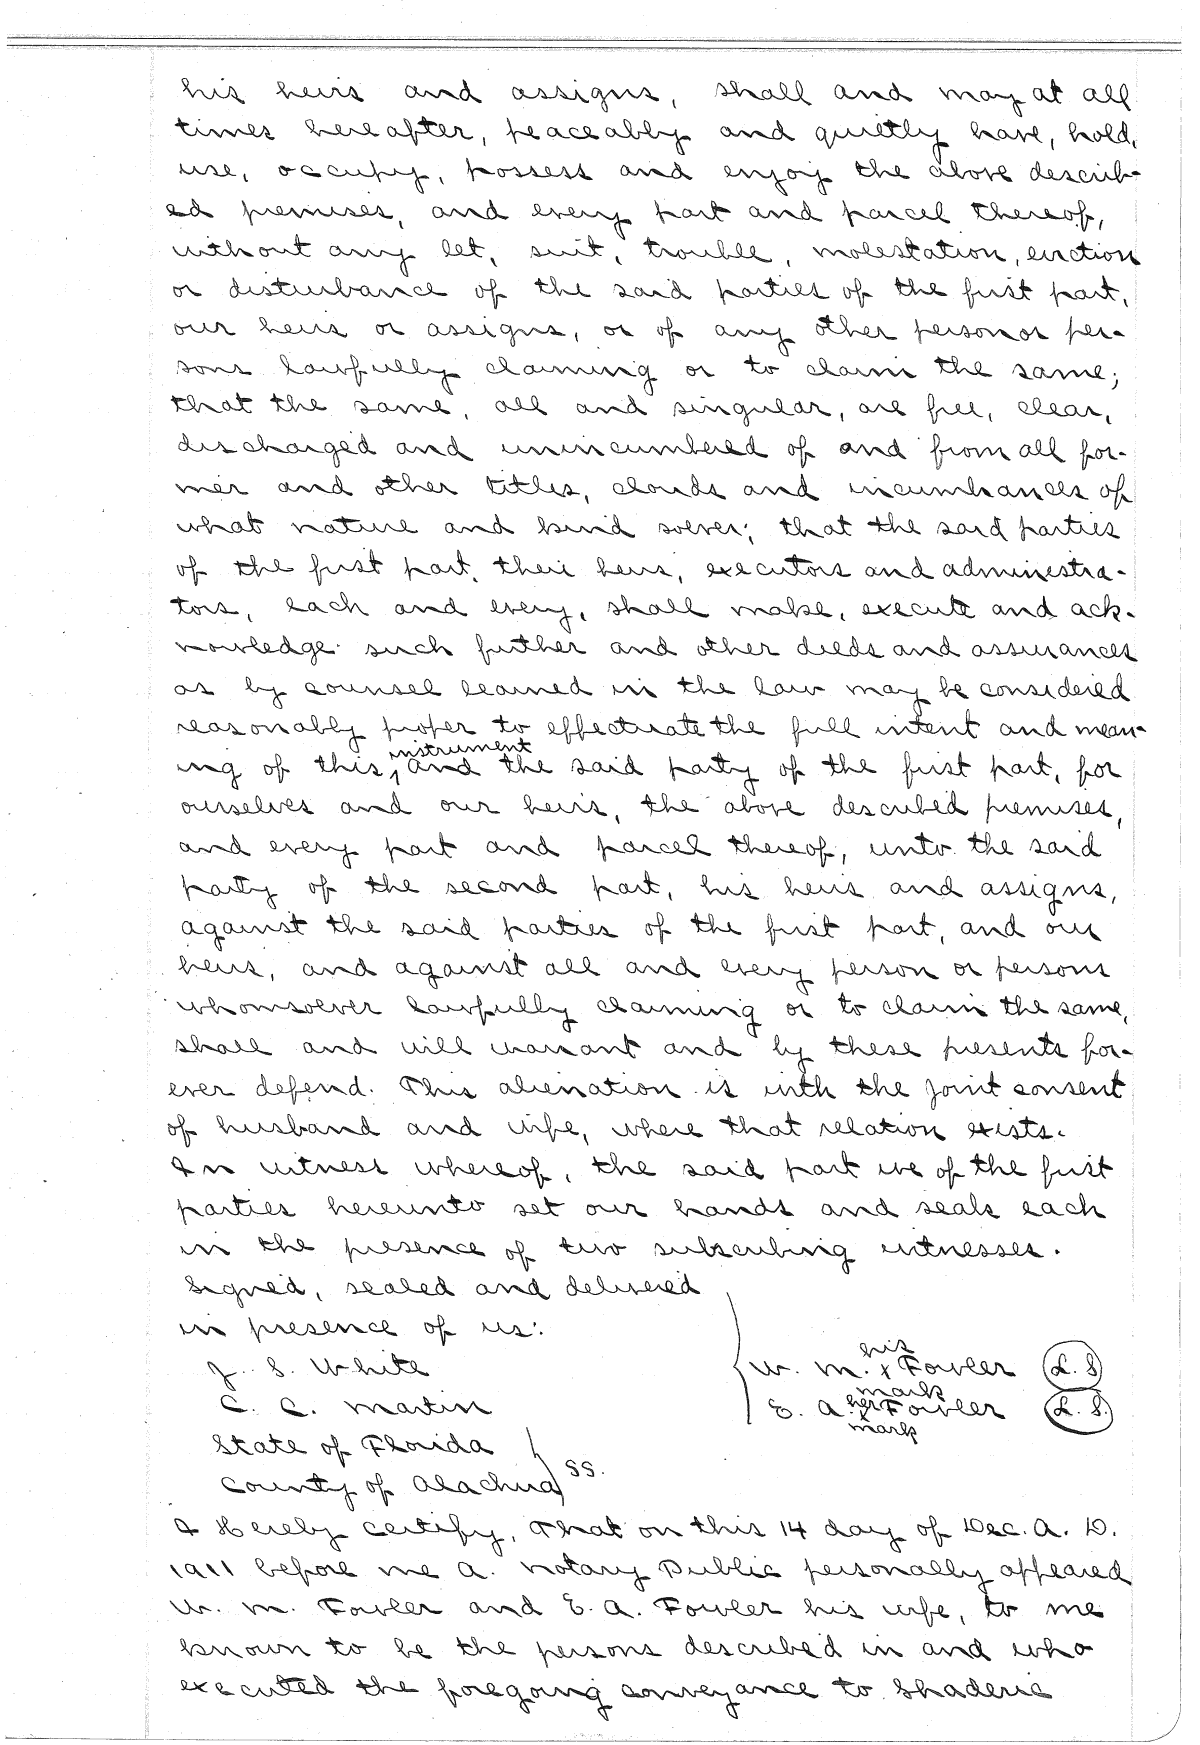 his heirs and assigns, shall and may at all
times hereafter, peaceably and quietly have, hold,
use, occupy, possess and enjoy the above describ-
ed premises, and every part and parcel thereof,
without any let, suit, trouble, molestation, eviction
or disturbance of the said parties of the first part,
our heirs or assigns, or of any other person or per-
sons lawfully claiming or to claim the same;
that the same, all and singular, are free, clear,
discharged and unincumbered of and from all for-
mer and other titles, clouds and incumbrances of
what nature and kind soever; that the said parties
of the first part, their heirs, executors and administra-
tors, each and every, shall make, execute and ack-
nowledge such further and other deeds and assurances
as by counsel learned in the law may be considered
reasonably proper to effectuate the full intent and mean-
instrument
ing of this, and the said party of the first part, for
ourselves and our heirs, the above described premises,
and every part and parcel thereof, unto the said
party of the second part, his heirs and assigns,
against the said parties of the first part, and our
heirs, and against all and every person or persons
whomsoever lawfully claiming or to claim the same,
shall and will warrant and by these presents for-
ever defend. This alienation is with the joint consent
of husband and wife, where that relation exists.
In witness whereof, the said part ive of the first
parties hereunto set our hands and seals each
in the presence of two subscribing witnesses.
Signed, sealed and delivered
in presence of us:
his
J. S. White W. M. x Fowler L. S
mark
C. C. Martin E. A. her x Fowler L. S.
mark
State of Florida
SS.
County of Alachua
I Hereby certify, That on this 14 day of Dec. A. D.
1911 before me a. notary Public personally appeared
W. M. Fowler and E. A. Fowler his wife, to me
known to be the persons described in and who
executed the foregoing conveyance to Shaderic